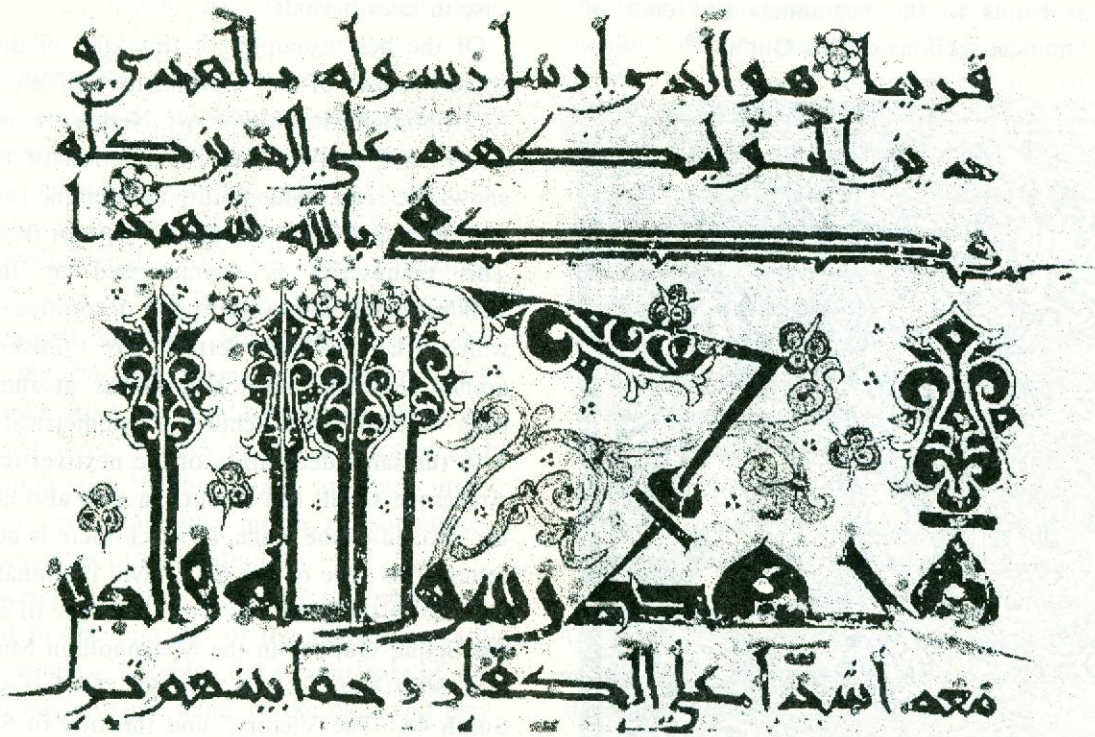 قريبا هو الذي ارسل رسوله بالهدى و
دين الحق ليظهره على الدين كله
و كفى بالله شهيدا
محمد رسول الله والذين
معه اشدا على الكفار رحما بينهم